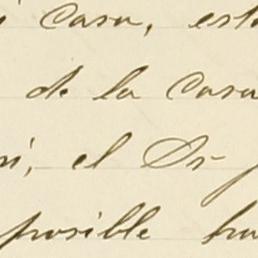 casa, est
de la casa
el Dr
posible